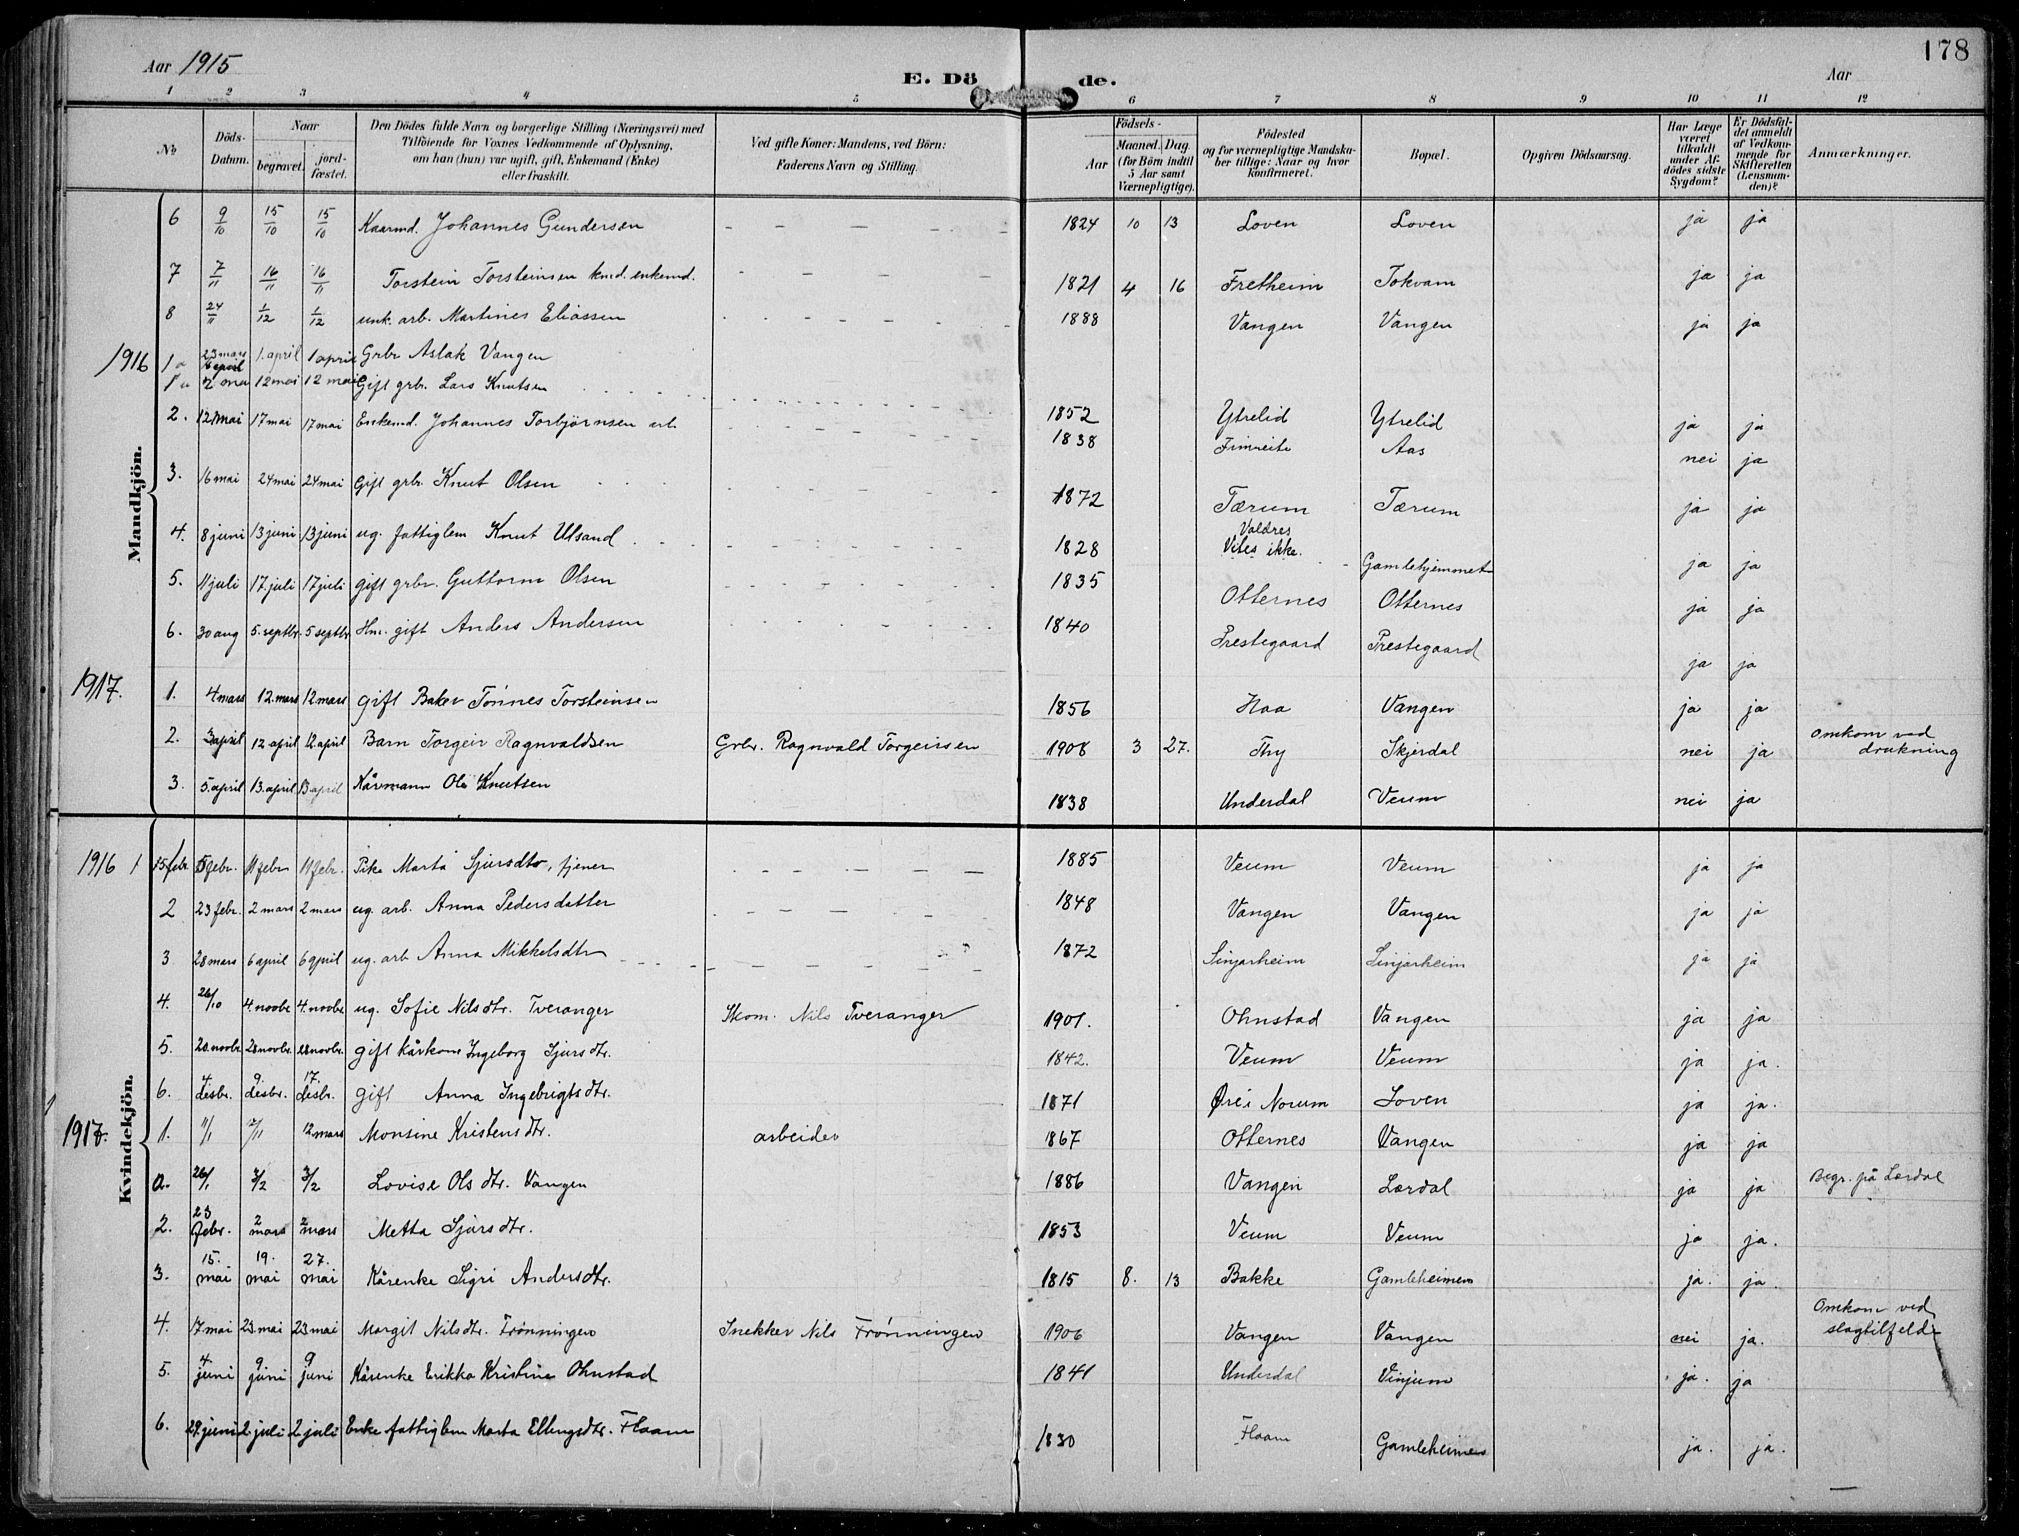 178
Aar 1915 E. Dö de. Aar
1 2 3 4 5 6 7 8 9 10 11 12
No
Döds-Datum.
Naar
begravet.
jord-fæstet.
Den Dödes fulde Navn og borgerlige Stilling (Næringsvei) med
Tilföiende for Voxnes Vedkommende af Oplysning,
om han (hun) var ugift, gift, Enkemand (Enke)
eller fraskilt.
Ved gifte Koner: Mandens, ved Börn:
Faderens Navn og Stilling.
Födsels-
Aar
Maaned. Dag
(for Börn indtil
5 Aar samt
Værnepligtige).
Födested
og for værnepligtige Mandska-
ber tillige: Naar og hvor
konfirmeret.
Bopæl.
Opgiven Dödsaarsag.
Har Læge
været
tilkaldt
under Af-
dödes sidste
Sygdom?
Er Dödsfal-
det anmeldt
af Vedkom-
mende for
Skifteretten
(Lensman-
den)?
Anmærkninger.
Mandkjön.
6 9/10 15/10 15/10 Kaarmd. Johannes Gundersen 1824 10 13 Loven Loven ja ja
7 7/11 16/11 16/11 Torstein Torsteinsen kmd. enkemd. 1821 4 16 Fretheim Tokvam ja ja
8 24/11 1/12 1/12 unk. arb. Martines Eliassen 1888 Vangen Vangen ja ja
1916 1 a 23 mars 1. april 1 april Grbr Aslak Vangen
1 2 mai 12 mai 12 mai Gift grbr. Lars Knutsen 1852 Ytrelid Ytrelid ja ja
2. 12 mai 17 mai 17 mai Enkemd. Johannes Torbjörnsen arb. 1838 Fimreite Aas nei ja
3. 16 mai 24 mai 24 mai Gift grbr. Knut Olsen 1872 Tærum Tærum ja ja
4. 8 juni 13 juni 13 juni ug. fattiglem Knut Ulsand 1828 Valdres Vites ikke. Gamlehjemmet ja ja
5. 11 juli 17. juli 17 juli gift grbr. Guttorm Olsen 1835 Otternes Otternes ja ja
6. 30 aug 5. septbr. 5 septbr. Hm. gift Anders Andersen 1840 Prestegaard Prestegaard ja ja
1917. 1. 4 mars 12. mars 12 mars gift Baker Tönnes Torsteinsen 1856 Haa Vangen ja ja
2. 3 april 12 april 12. april Barn Torgeir Ragnvaldsen Grbr. Ragnvald Torgeirssen 1908 3 27. Thy Skjerdal nei ja Omkom ved drukning
3. 5. april 13. april 13 april Kårmann Ole Knutsen 1838 Underdal Veum nei ja
Kvindekjön.
1916 1 5 febr. 11 febr 11 febr. Pike Marta Sjursdtr, tjener 1885 Veum Veum ja ja
2 23 febr. 2 mars 2 mars ug. arb. Anna Pedersdatter 1848 Vangen Vangen ja ja
3 28 mars 6 april 6 april ug. arb Anna Mikkelsdtr 1872 Sinjarheim Sinjarheim ja ja
4. 26/10 4. novbr 4. novbr. ug. Sofie Nilsdtr. Tveranger Skom. Nils Tveranger 1901. Ohnstad Vangen ja ja
5. 20. novbr. 28 novbr. 28 novbr. gift kårkone Ingeborg Sjursdtr. 1842. Veum Veum ja ja.
6. 4 desbr. 9. desbr. 17. desbr. gift Anna Ingebrigtsdtr. 1871 Ørei Norum Loven ja ja.
1917. 1. 11/1 12 mars Monsine Kristensdtr. arbeider 1867 Otternes Vangen ja ja
a. 26/1 3/2 3/2 Lovise Olsdtr. Vangen 1886 Vangen Lærdal ja ja Begr. på Lærdal
2. 23 febr. 2 mars 2 mars Metta Sjursdtr. 1853 Veum Veum ja ja.
3. 15. mai 19. mai 27. mai Kårenke Sigri Andersdtr. 1815 8. 13 Bakke Gamleheimen ja. ja.
4. 17 mai 23. mai 23 mai Margit Nilsdtr. Frönningen Snekker Nils Frönningen 1906 Vangen Vangen nei ja. Omkom ved slagtilfelde
5. 4 juni 9 juni 9 juni Kårenke Erikka Kristine Ohnstad 1841 Underdal Vinjum ja. ja
6. 29. juni 2 juli 2 juli Enke fattiglem Marta Ellingsdtr. Flaam 1830 Flaam Gamleheimen ja. ja.